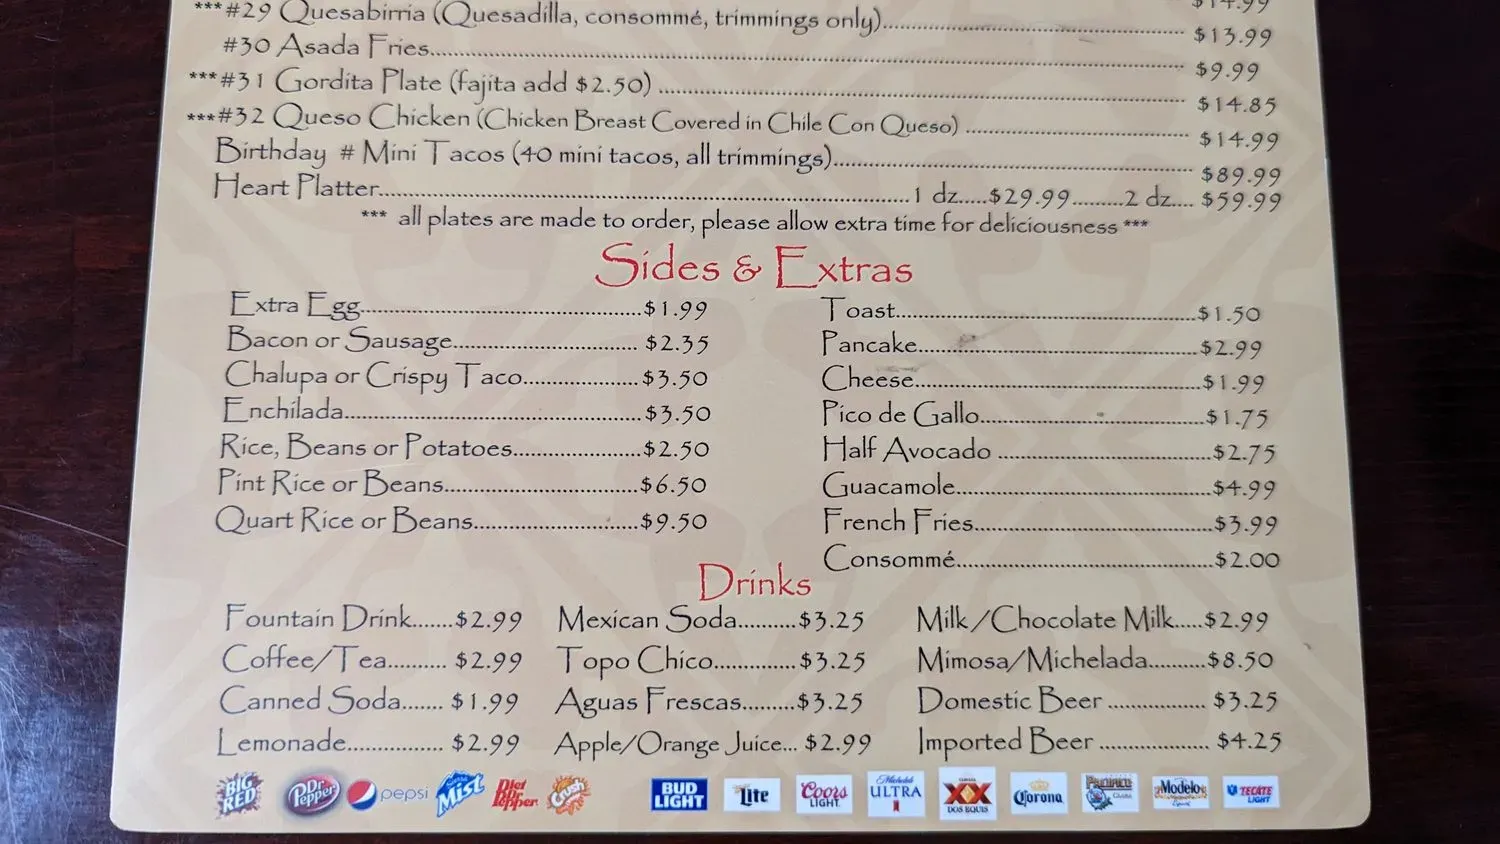 $14.99
***#29 Quesabirria (Quesadilla, consommé, trimmings only)..........$13.99
#30 Asada Fries..........$9.99
***#31 Gordita Plate (fajita add $2.50) ..........$14.85
***#32 Queso Chicken (Chicken Breast Covered in Chile Con Queso) ..........$14.99
Birthday # Mini Tacos (40 mini tacos, all trimmings)..........$89.99
Heart Platter..........1 dz.....$29.99.........2 dz.... $59.99
*** all plates are made to order, please allow extra time for deliciousness ***
Sides & Extras
Extra Egg..........$1.99
Bacon or Sausage.......... $2.35
Chalupa or Crispy Taco..........$3.50
Enchilada..........$3.50
Rice, Beans or Potatoes..........$2.50
Pint Rice or Beans..........$6.50
Quart Rice or Beans..........$9.50
Toast..........$1.50
Pancake..........$2.99
Cheese..........$1.99
Pico de Gallo..........$1.75
Half Avocado ..........$2.75
Guacamole..........$4.99
French Fries..........$3.99
Consommé..........$2.00
Drinks
Fountain Drink.......$2.99
Coffee/Tea.......... $2.99
Canned Soda....... $1.99
Lemonade................ $2.99
Mexican Soda..........$3.25
Topo Chico..............$3.25
Aguas Frescas.........$3.25
Apple/Orange Juice... $2.99
Milk/Chocolate Milk.....$2.99
Mimosa/Michelada.........$8.50
Domestic Beer ................$3.25
Imported Beer .................. $4.25
BIG RED
Dr Pepper
pepsi
Mist
Diet Dr Pepper
Crush
BUD LIGHT
Lite
Coors LIGHT
Michelob ULTRA
XX DOS EQUIS
Corona
Pacifico
Modelo
TECATE LIGHT